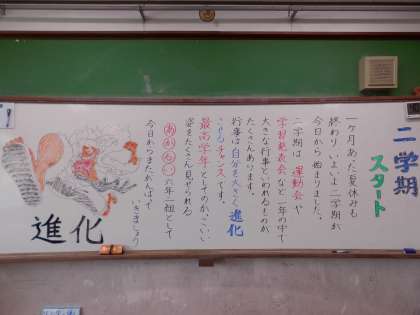 二学期
スタート
一ヶ月あった夏休みも
終わり、いよいよ二学期が
今日から始まりました。
二学期は、運動会や
学習発表会など一年の中で
大きな行事といわれるものが
たくさんあります。
行事は自分を大きく進化
させるチャンスです。
最高学年としてのかっこいい
姿をたくさん見せられる
六年一組として
今日からまたがんばって
いきましょう
進化